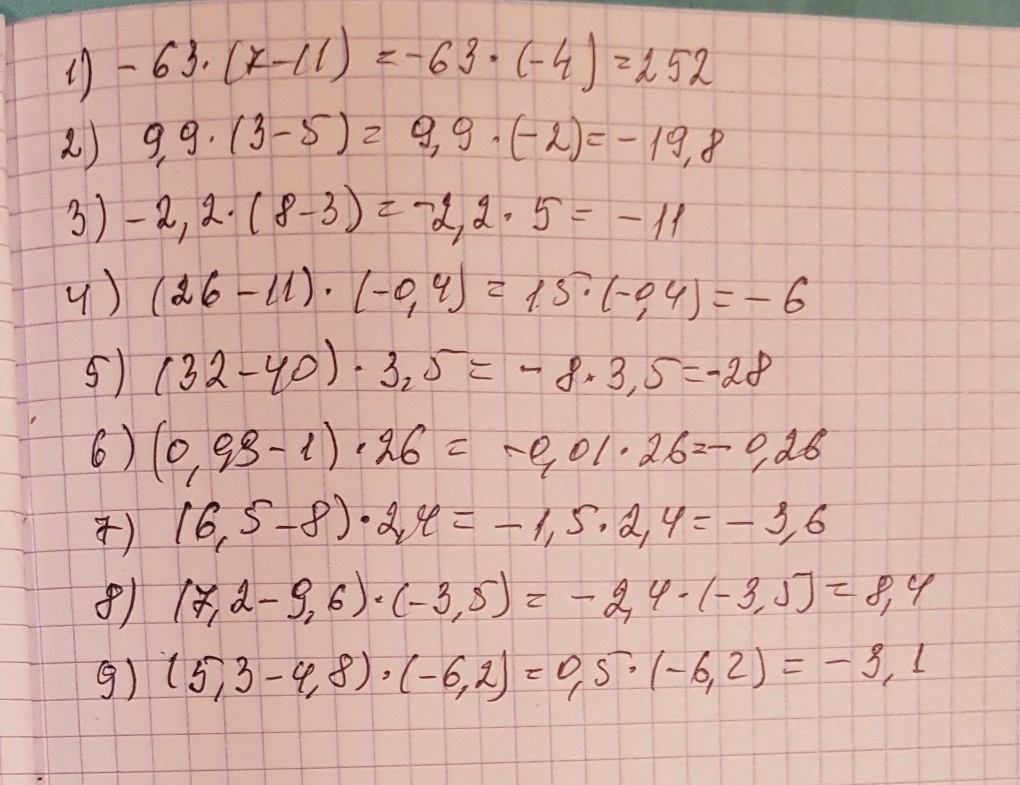 1) - 63 · (7 - 11) = -63 · (-4) = 252
2) 9,9 · (3 - 5) = 9,9 · (-2) = - 19,8
3) - 2,2 · (8 - 3) = -2,2 · 5 = - 11
4) (26 - 11) · (-0,4) = 15 · (-0,4) = - 6
5) (32 - 40) · 3,5 = - 8 · 3,5 = -28
6) (0,99 - 1) · 26 = -0,01 · 26 = - 0,26
7) (6,5 - 8) · 2,4 = - 1,5 · 2,4 = - 3,6
8) (7,2 - 9,6) · (-3,5) = - 2,4 · (-3,5) = 8,4
9) (5,3 - 4,8) · (-6,2) = 0,5 · (-6,2) = - 3,1